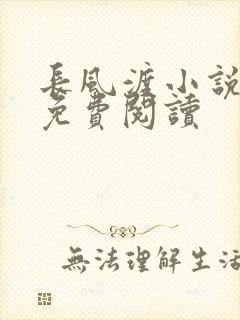 長風渡小說
免費閱讀
無法理解生活